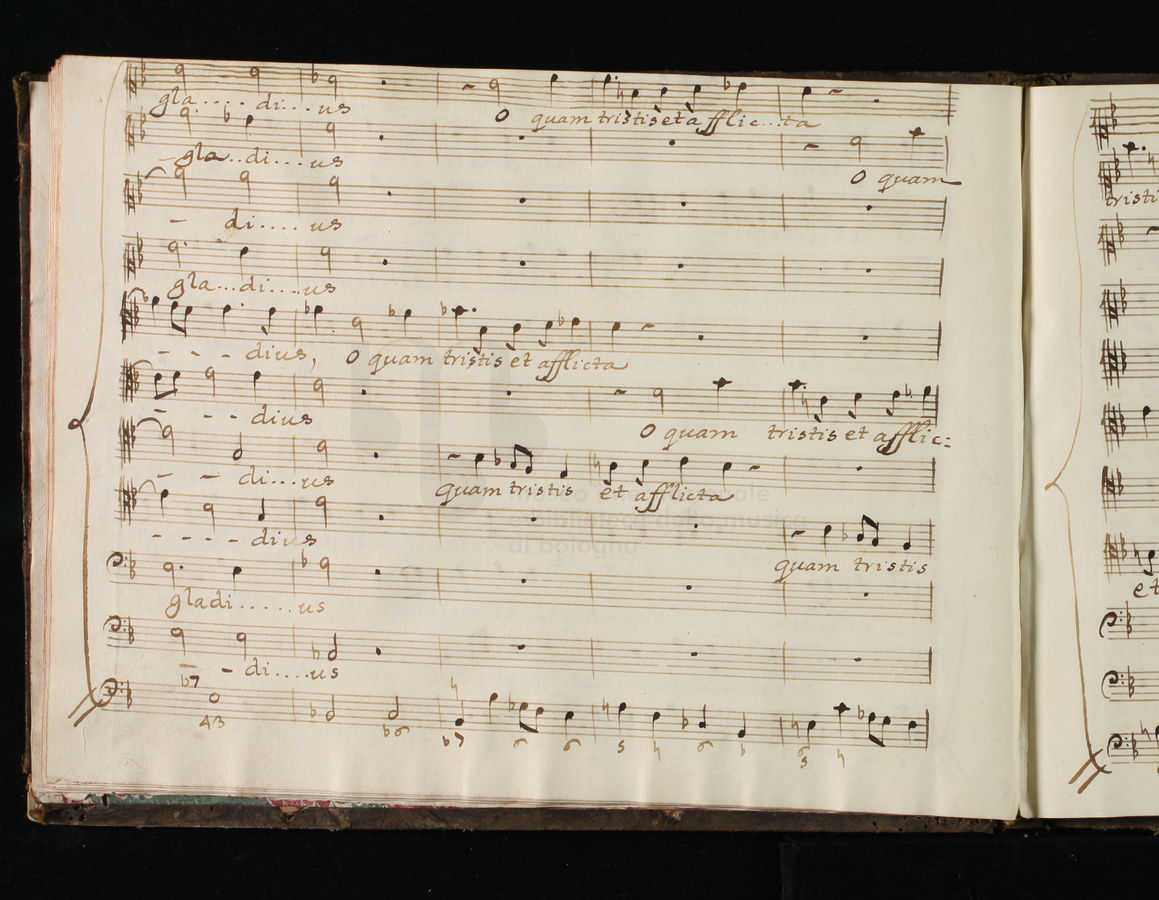 gla.... di... us O quam tristis et a fflic...ta
gla..di.... us O quam
- di.... us
gla...di....us
- - - dius, O quam tristis et afflicta
- - - dius O quam tristis et afflic:
- - di...us quam tristis et afflicta
- - - - dius quam tristis
gladi.....us
- - di....us
b7
43 b6 b7 6 6 5 6 b 6 5
tristi
et
di bologna